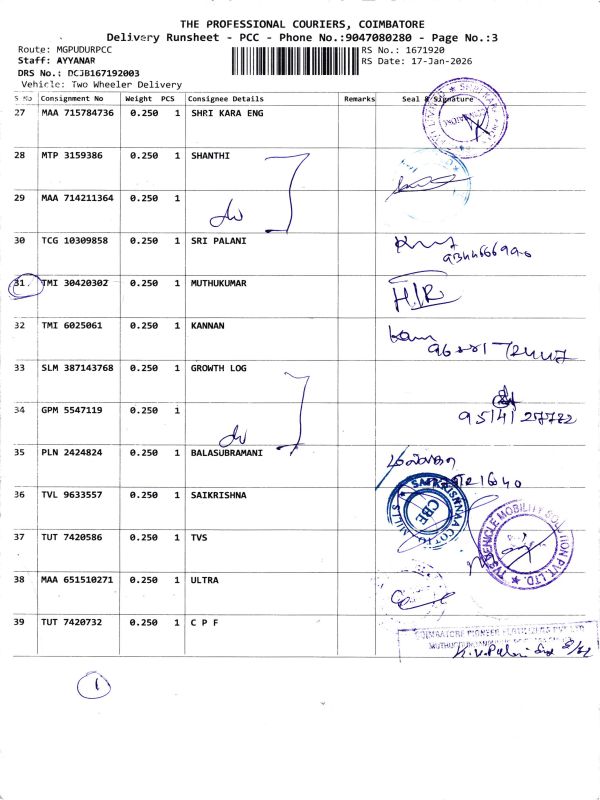 THE PROFESSIONAL COURIERS, COIMBATORE
Delivery Runsheet - PCC - Phone No.:9047080280 - Page No.:3
Route: MGPUDURPCC RS No.: 1671920
Staff: AYYANAR RS Date: 17-Jan-2026
DRS No.: DCJB167192003
Vehicle: Two Wheeler Delivery
S No Consignment No Weight PCS Consignee Details Remarks Seal & Signature
27 MAA 715784736 0.250 1 SHRI KARA ENG
28 MTP 3159386 0.250 1 SHANTHI
29 MAA 714211364 0.250 1
30 TCG 10309858 0.250 1 SRI PALANI
31. TMI 30420302 0.250 1 MUTHUKUMAR
H.I.R
32 TMI 6025061 0.250 1 KANNAN
33 SLM 387143768 0.250 1 GROWTH LOG
34 GPM 5547119 0.250 1
35 PLN 2424824 0.250 1 BALASUBRAMANI
36 TVL 9633557 0.250 1 SAIKRISHNA
SAIKRISHNAA COTTO MILLS
CBE
37 TUT 7420586 0.250 1 TVS
TVS VEHICLE MOBILITY SOLUTION PVT. LTD.
38 MAA 651510271 0.250 1 ULTRA
39 TUT 7420732 0.250 1 C P F
COIMBATORE PIONEER FERTILIZERS PVT LTD
1